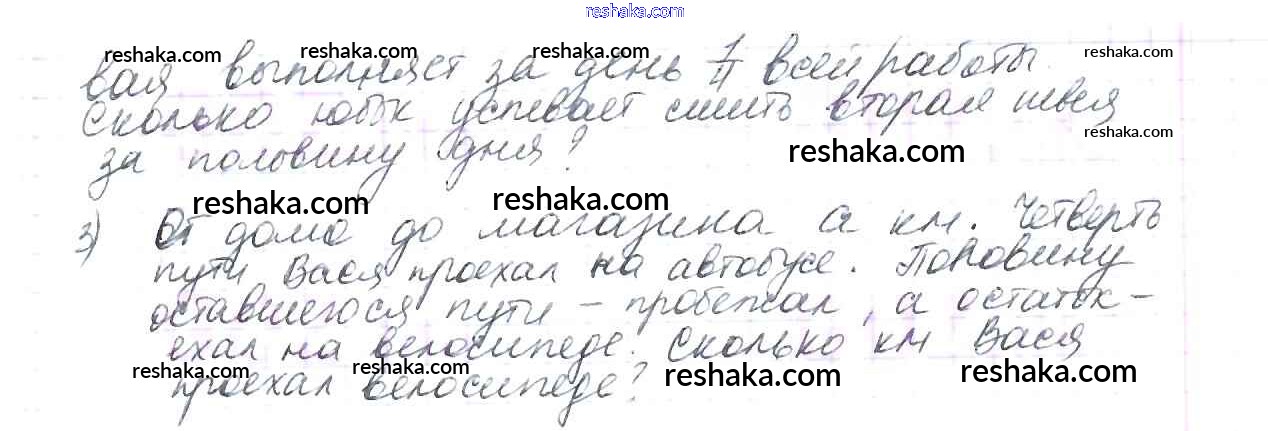 reshaka.com
reshaka.com reshaka.com reshaka.com reshaka.com
вая выполняет за день 1/11 всей работы.
Сколько юбок успевает сшить вторая швея
reshaka.com
за половину дня?
reshaka.com
reshaka.com reshaka.com
3) От дома до магазина а км. Четверть
пути Вася проехал на автобусе. Половину
оставшегося пути – пробежал, а остаток –
ехал на велосипеде. Сколько км Вася
reshaka.com reshaka.com reshaka.com reshaka.com
проехал велосипеде?